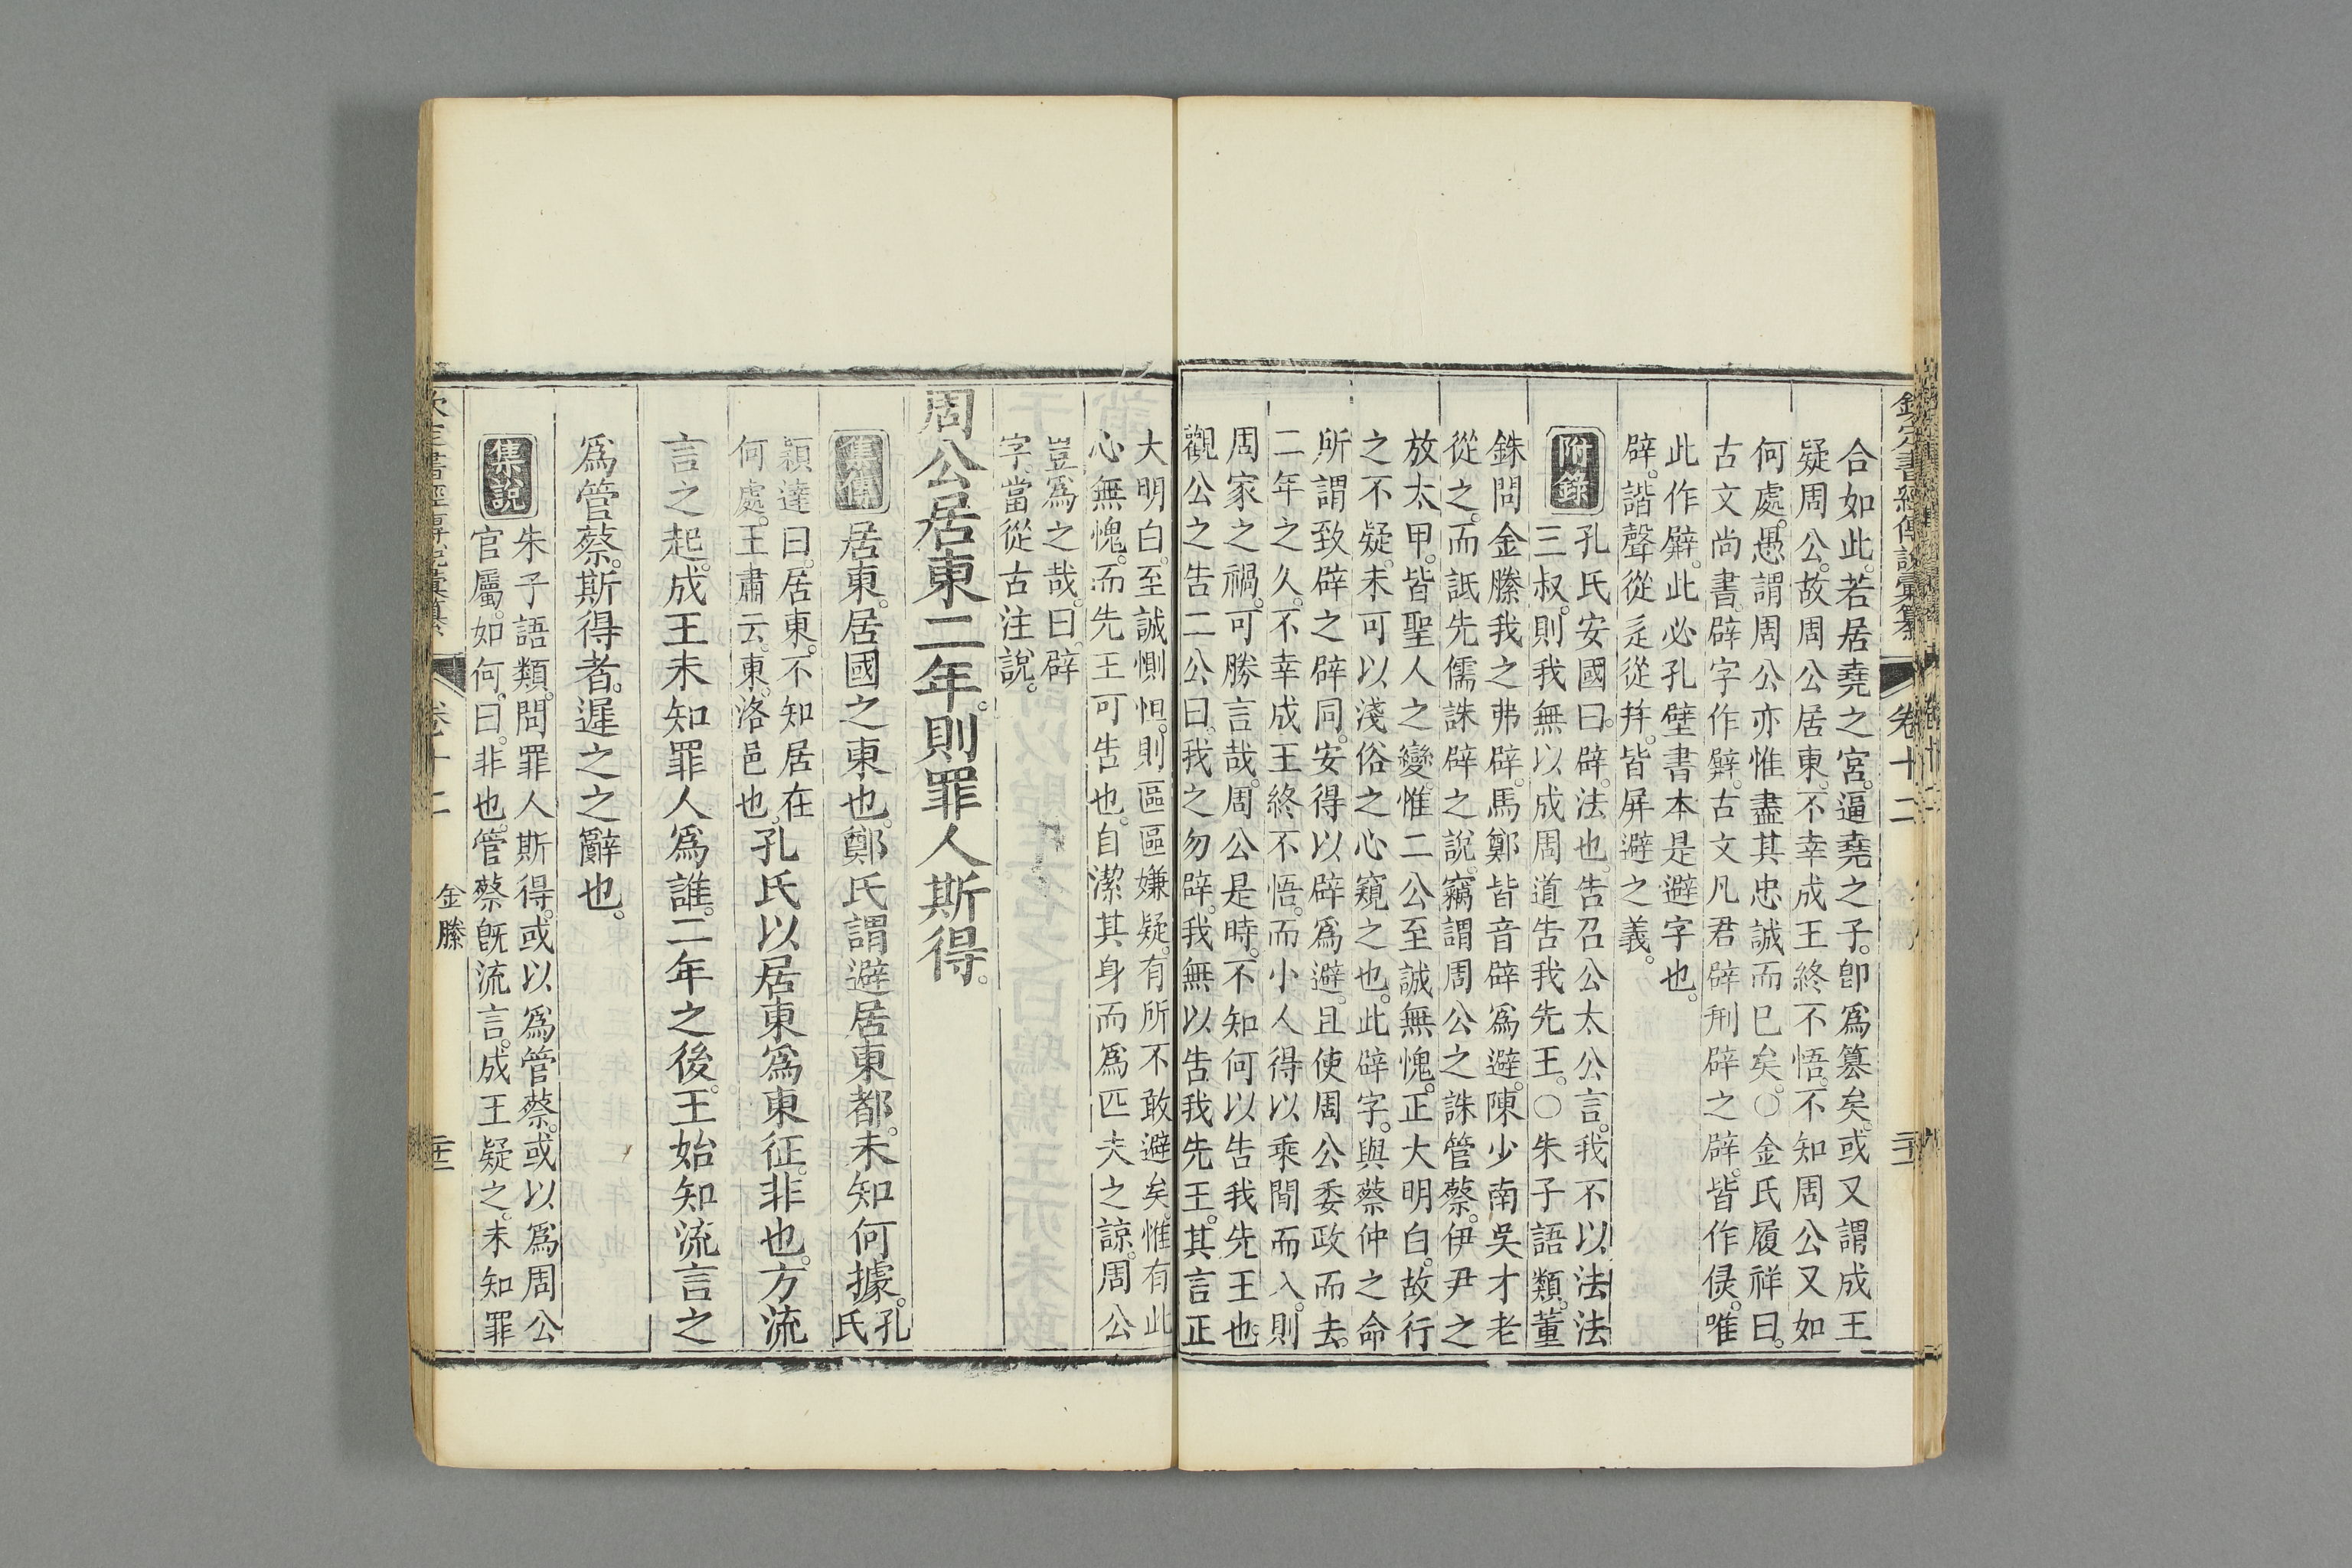 欽定書經傳說彙纂 卷十二
合如此。若居堯之宮。逼堯之子。卽爲篡矣。或又謂成王
疑周公。故周公居東。不幸成王終不悟。不知周公又如
何處。愚謂周公亦惟盡其忠誠而已矣。○金氏履祥曰。
古文尚書。辟字作𨐨。古文凡君辟刑辟之辟。皆作侯。唯
此作𨐨。此必孔壁書本是避字也。
辟。諧聲從辵從𢌿。皆屏避之義。
附錄
孔氏安國曰。辟。法也。告召公太公言。我不以法法
三叔。則我無以成周道告我先王。○朱子語類。董
銖問金縢我之弗辟。馬鄭皆音辟爲避。陳少南吳才老
從之。而詆先儒誅辟之說。竊謂周公之誅管蔡。伊尹之
放太甲。皆聖人之變。惟二公至誠無愧。正大明白。故行
之不疑。未可以淺俗之心窺之也。此辟字。與蔡仲之命
所謂致辟之辟同。安得以辟爲避。且使周公委政而去。
二年之久。不幸成王終不悟。而小人得以乘閒而入。則
周家之禍。可勝言哉。周公是時。不知何以告我先王也。
觀公之告二公曰。我之勿辟。我無以告我先王。其言正
大明白。至誠惻怛。則區區嫌疑。有所不敢避矣。惟有此
心無愧。而先王可告也。自潔其身而爲匹夫之諒。周公
豈爲之哉。曰。辟
字當從古注說。
周公居東二年。則罪人斯得。
集傳
居東。居國之東也。鄭氏謂避居東都。未知何據。孔氏
穎達曰。居東。不知居在
何處。王肅云。東。洛邑也。
孔氏以居東爲東征。非也。方流
言之起。成王未知罪人爲誰。二年之後。王始知流言之
爲管蔡。斯得者。遲之之辭也。
集說
朱子語類。問罪人斯得。或以爲管蔡。或以爲周公
官屬。如何。曰。非也。管蔡旣流言。成王疑之。未知罪
卷十二 金縢